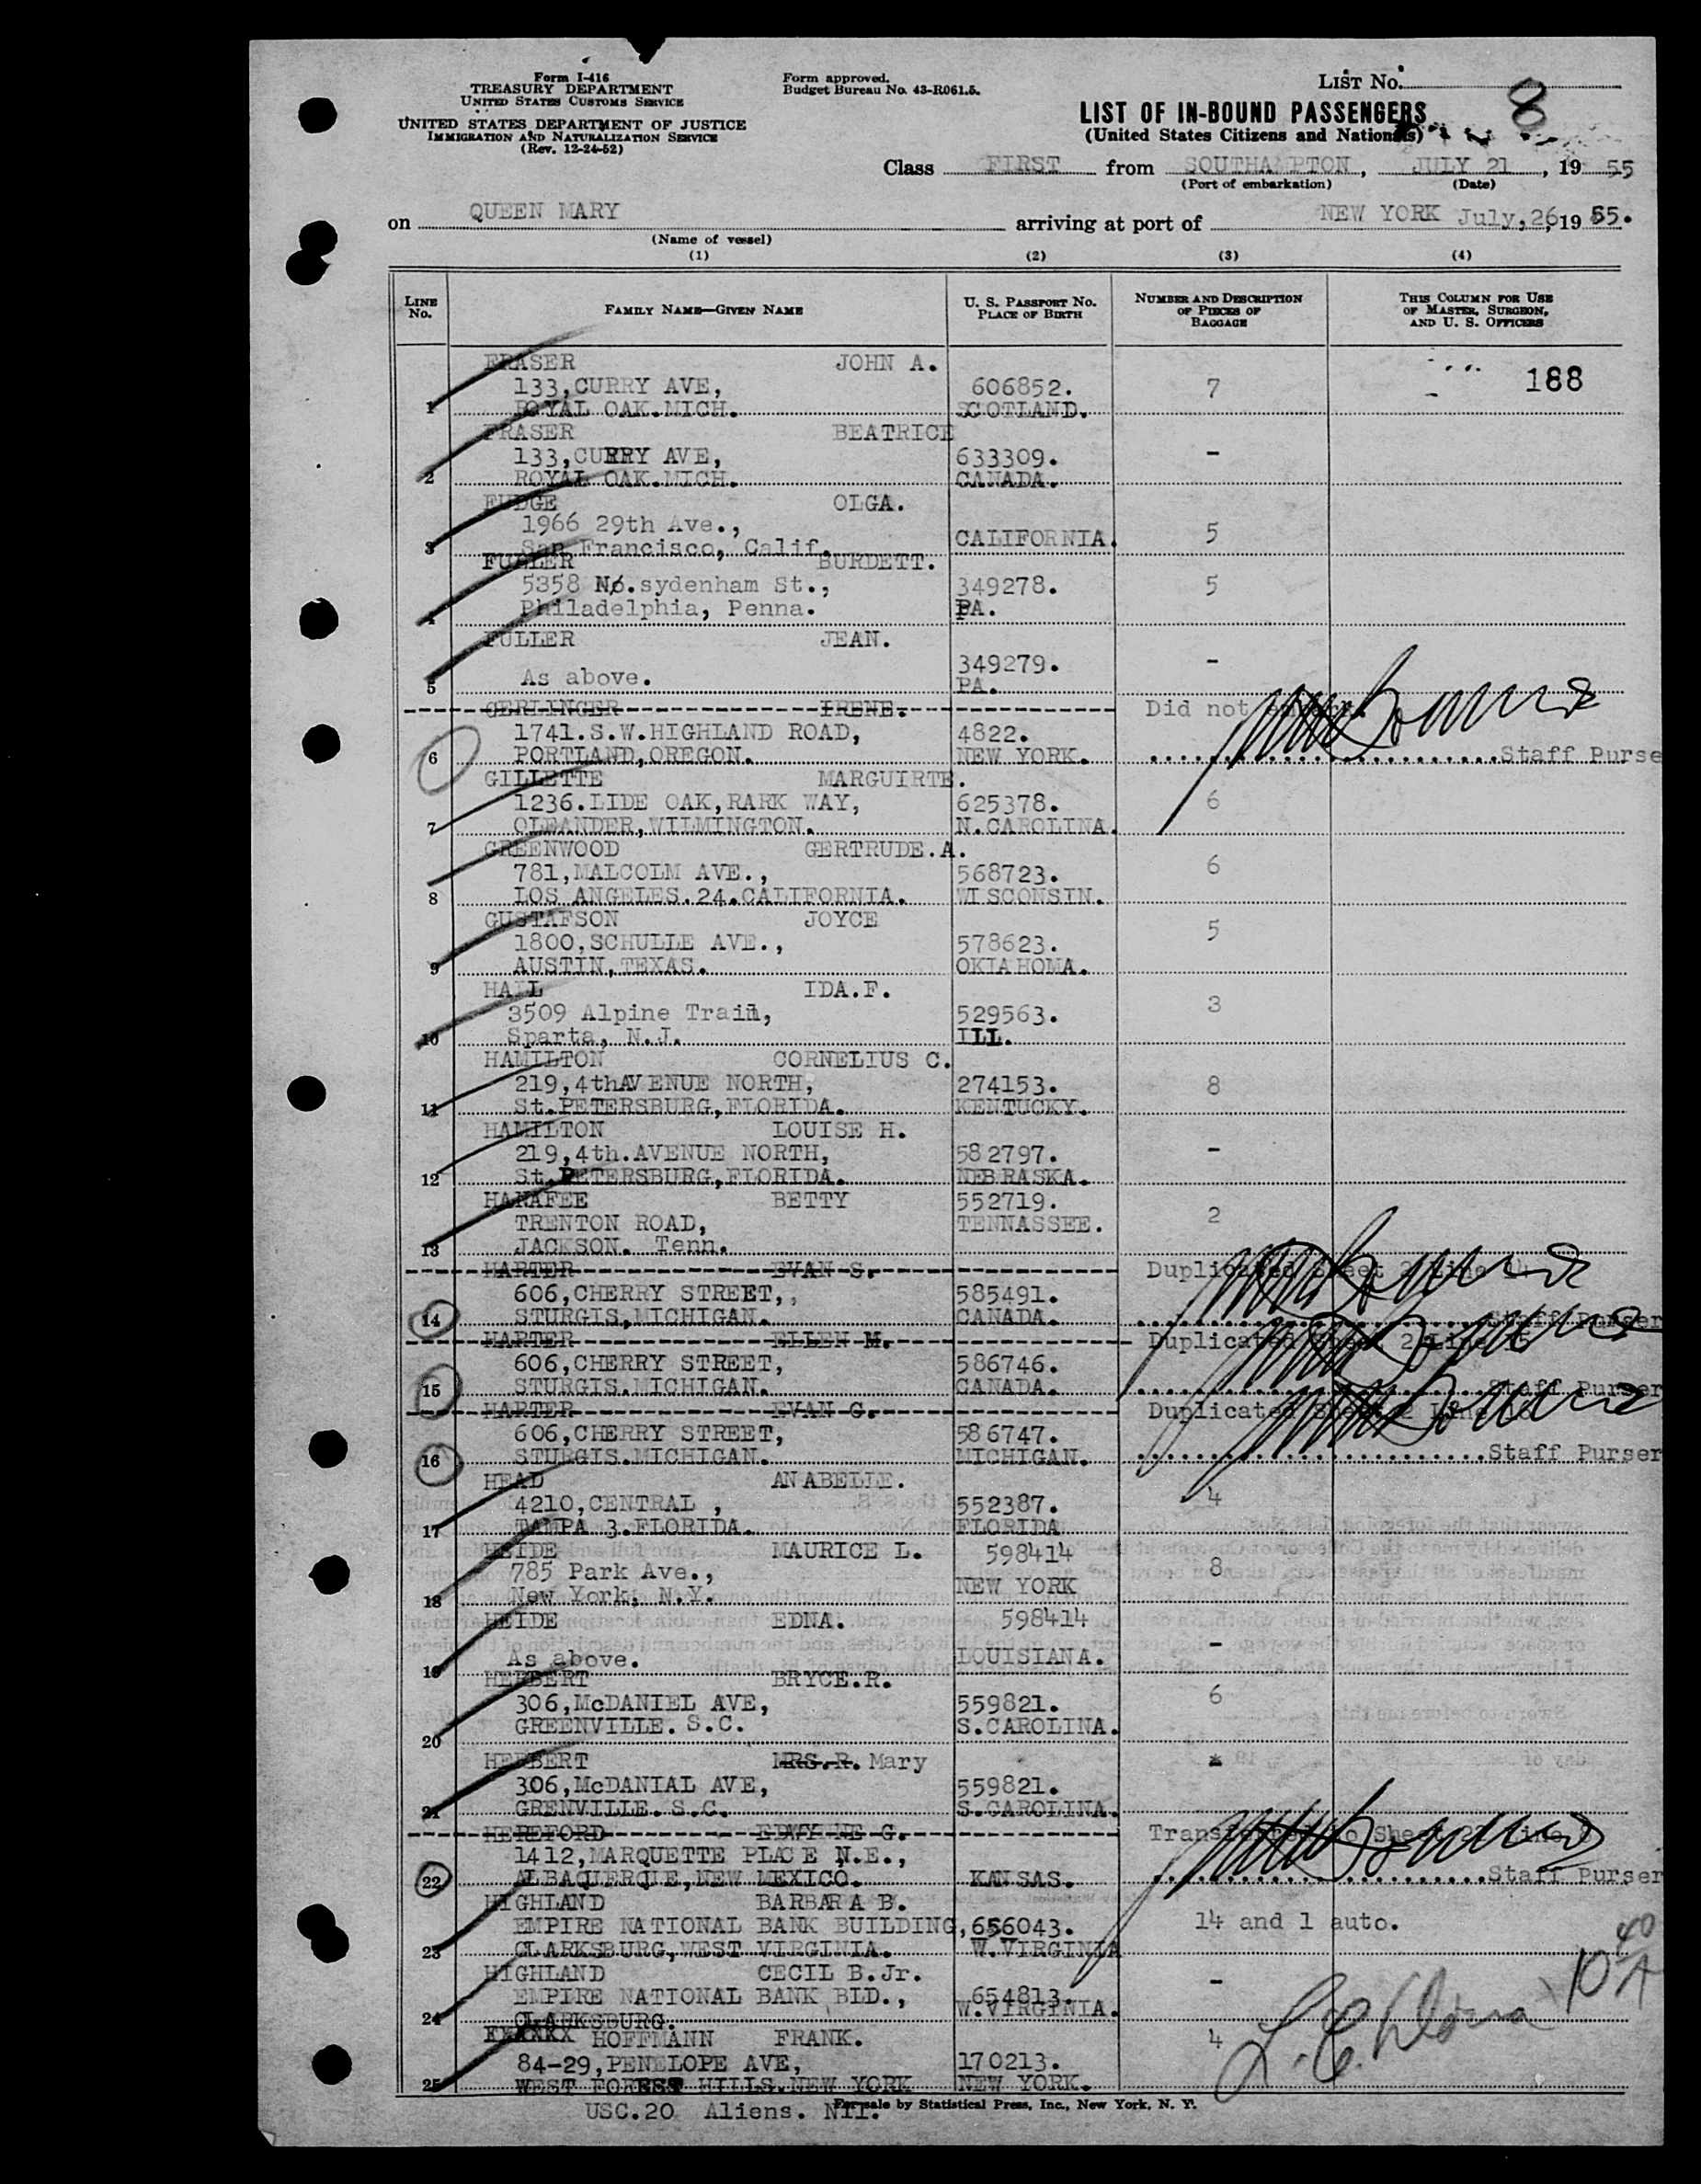 Form I-416
TREASURY DEPARTMENT
UNITED STATES CUSTOMS SERVICE
UNITED STATES DEPARTMENT OF JUSTICE
IMMIGRATION AND NATURALIZATION SERVICE
(Rev. 12-24-52)
Form approved.
Budget Bureau No. 43-R061.5.
LIST No. 8
LIST OF IN-BOUND PASSENGERS
(United States Citizens and Nationals)
Class FIRST from SOUTHAMPTON, JULY 21, 1955
(Port of embarkation) (Date)
on QUEEN MARY arriving at port of NEW YORK July, 26, 1955.
(Name of vessel)
(1) (2) (3) (4)
LINE No. FAMILY NAME—GIVEN NAME U. S. PASSPORT NO. PLACE OF BIRTH NUMBER AND DESCRIPTION OF PIECES OF BAGGAGE THIS COLUMN FOR USE OF MASTER, SURGEON, AND U. S. OFFICERS
FRASER JOHN A.
133,CURRY AVE, 606852. 7 188
1 ROYAL OAK.MICH. SCOTLAND.
FRASER BEATRICE
133,CURRY AVE, 633309. -
2 ROYAL OAK.MICH. CANADA.
FUDGE OLGA.
1966 29th Ave., CALIFORNIA. 5
3 San Francisco, Calif.
FULLER BURDETT.
5358 No.sydenham St., 349278. 5
4 Philadelphia, Penna. PA.
FULLER JEAN.
349279. -
5 As above. PA.
GERLINGER IRENE. Did not
1741.S.W.HIGHLAND ROAD, 4822.
6 PORTLAND,OREGON. NEW YORK. Staff Purse
GILLETTE MARGUIRTE.
1236.LIDE OAK,RARK WAY, 625378. 6
7 OLEANDER,WILMINGTON. N.CAROLINA.
GREENWOOD GERTRUDE.A.
781,MALCOLM AVE., 568723. 6
8 LOS ANGELES.24.CALIFORNIA. WISCONSIN.
GUSTAFSON JOYCE
1800,SCHULLE AVE., 578623. 5
9 AUSTIN,TEXAS. OKLAHOMA.
HALL IDA.F.
3509 Alpine Trail, 529563. 3
10 Sparta, N.J. ILL.
HAMILTON CORNELIUS C.
219,4thAVENUE NORTH, 274153. 8
11 St.PETERSBURG,FLORIDA. KENTUCKY.
HAMILTON LOUISE H.
219,4th.AVENUE NORTH, 582797. -
12 St.PETERSBURG,FLORIDA. NEBRASKA.
HARAFEE BETTY 552719.
TRENTON ROAD, TENNASSEE. 2
13 JACKSON. Tenn.
HARTER EVAN S. Duplicated Sheet 2 Line 14
606,CHERRY STREET,, 585491.
14 STURGIS,MICHIGAN. CANADA. Staff Purser
HARTER ELLEN M. Duplicated Sheet 2 Line 15
606,CHERRY STREET, 586746.
15 STURGIS.MICHIGAN. CANADA. Staff Purser
HARTER EVAN G. Duplicated Sheet 2 Line 16
606,CHERRY STREET, 586747.
16 STURGIS.MICHIGAN. MICHIGAN. Staff Purser
HEAD ANABELLE.
4210,CENTRAL , 552387. 4
17 TAMPA 3.FLORIDA. FLORIDA
HEIDE MAURICE L. 598414
785 Park Ave., 8
18 New York, N.Y. NEW YORK
HEIDE EDNA. 598414
-
19 As above. LOUISIANA.
HERBERT BRYCE.R.
306,McDANIEL AVE, 559821. 6
20 GREENVILLE. S.C. S.CAROLINA.
HERBERT MRS.R. Mary
306,McDANIAL AVE, 559821.
21 GRENVILLE. S.C. S.CAROLINA.
HEREFORD EDWYNE G. Transferred to Sheet Line
1412,MARQUETTE PLACE N.E.,
22 ALBAQUERQUE,NEW MEXICO. KANSAS. Staff Purser
HIGHLAND BARBARA B.
EMPIRE NATIONAL BANK BUILDING, 656043. 14 and 1 auto.
23 CLARKSBURG,WEST VIRGINIA. W.VIRGINIA
HIGHLAND CECIL B.Jr.
EMPIRE NATIONAL BANK BLD., 654813. - 10 40 A
24 CLARKSBURG. W.VIRGINIA.
HOFFMANN FRANK. 4
84-29,PENELOPE AVE, 170213.
25 WEST FOREST HILLS.NEW YORK NEW YORK.
USC.20 Aliens. Nil.
For sale by Statistical Press, Inc., New York, N. Y.